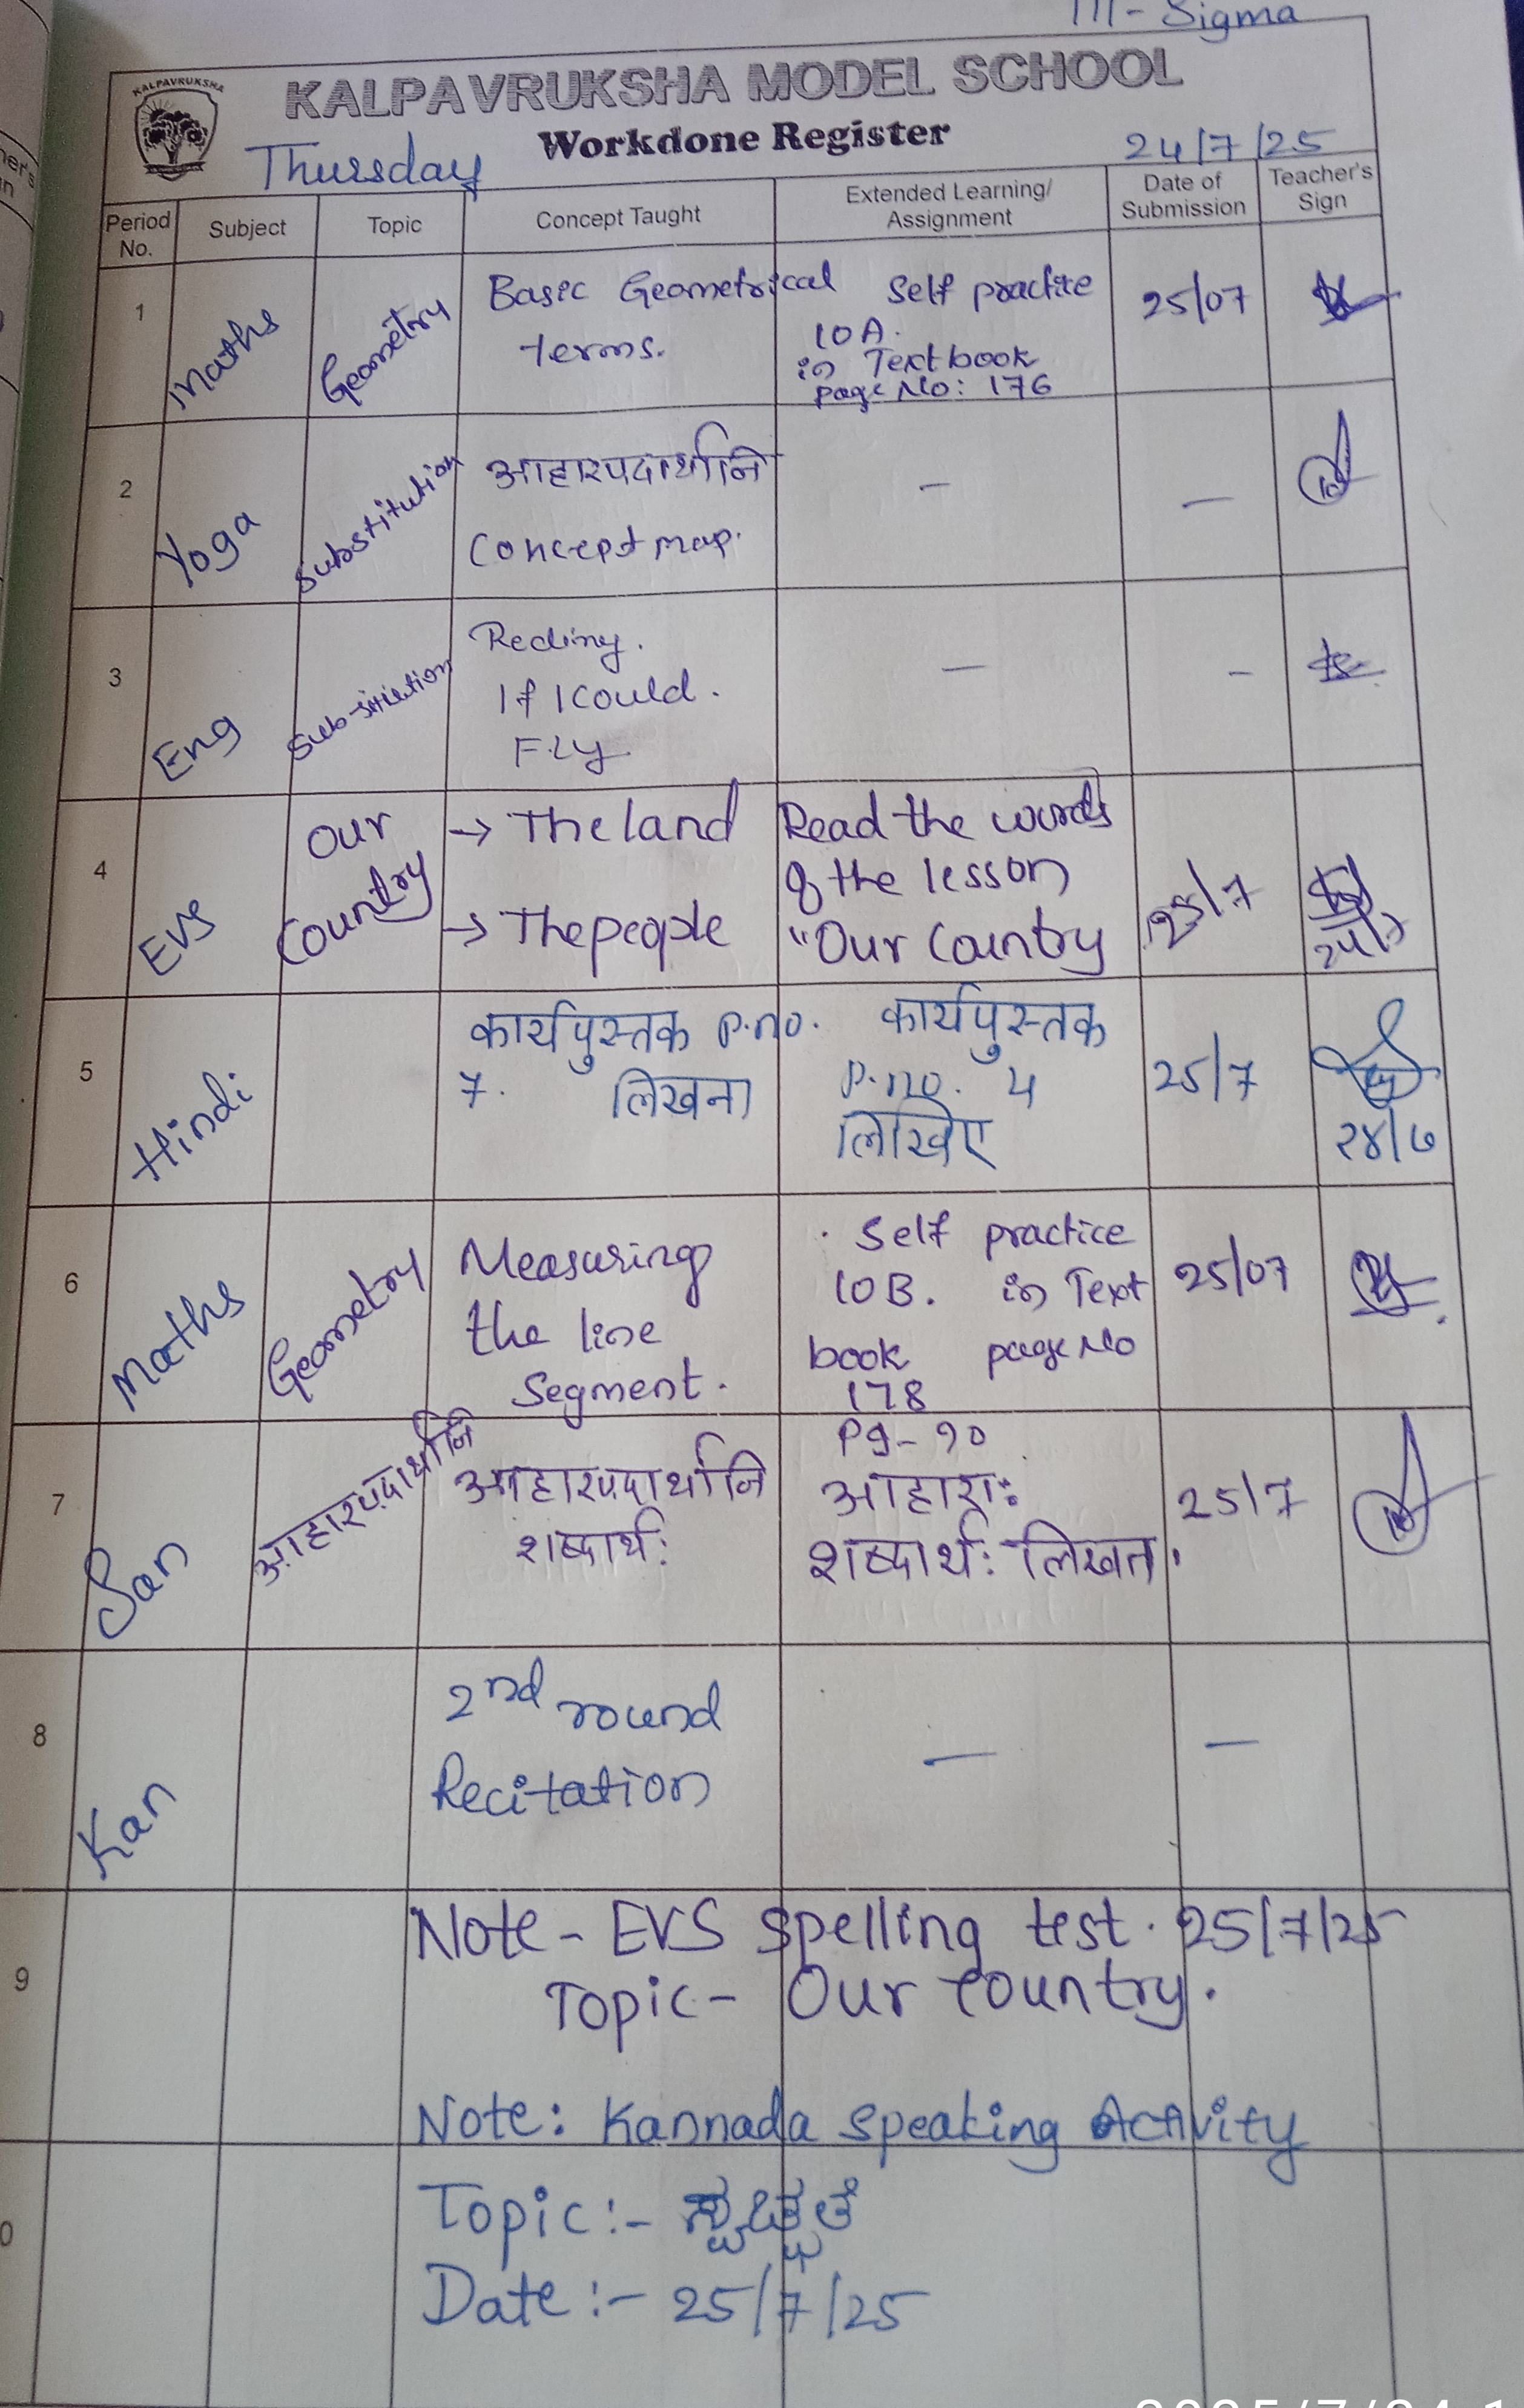 III - Sigma
KALPAVRUKSHA
KALPAVRUKSHA MODEL SCHOOL
Workdone Register
Thursday
24/7/25
Period No.
Subject
Topic
Concept Taught
Extended Learning/ Assignment
Date of Submission
Teacher's Sign
1
Maths
Geometry
Basic Geometrical
terms.
Self practice
10A.
in Textbook
page No: 176
25/07
2
Yoga
Substitution
आहारपदार्थानि
Concept map.
-
-
3
Eng
If I Could.
FLY
-
-
4
EVS
Our
Country
→ The land
→ The people
Read the words
of the lesson
"Our Country
25/7
24/7
5
Hindi
कार्यपुस्तक P.no.
7. लिखना
कार्यपुस्तक
P.no.
लिखिए
25/7
२४/७
6
Maths
Geometry
Measuring
the line
Segment.
Self practice
10B. in Text
book page No
178
25/07
7
San
आहारपदार्थानि
आहारपदार्थानि
शब्दार्थ:
Pg- १०
शब्दार्थ: लिखत.
25/7
8
Kan
2nd round
Recitation
-
-
9
Note - EVS Spelling test. 25/7/25
Topic - Our Country.
Note: Kannada Speaking Activity
0
Topic :-
Date :- 25/7/25